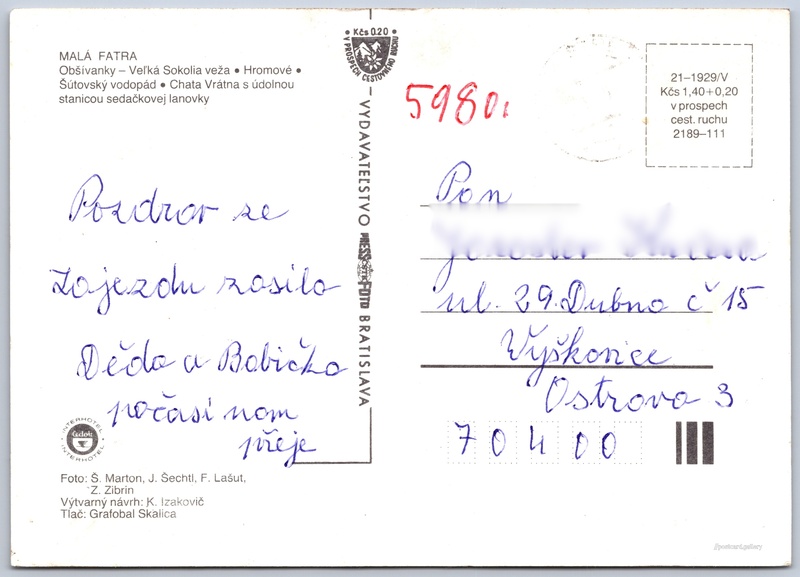 MALÁ FATRA
Obšívanky – Veľká Sokolia veža • Hromové •
Šútovský vodopád • Chata Vrátna s údolnou
stanicou sedačkovej lanovky
Pozdrav ze
zajezdu zasila
Děda a Babička
počasi nam
přeje
INTERHOTEL
čedok
INTERHOTEL
Foto: Š. Marton, J. Šechtl, F. Lašut,
Z. Zibrin
Výtvarný návrh: K. Izakovič
Tlač: Grafobal Skalica
Kčs 0.20
V PROSPECH CESTOVNÉHO RUCHU
VYDAVATEĽSTVO PRESSFOTO BRATISLAVA
5980.
21–1929/V
Kčs 1,40+0,20
v prospech
cest. ruchu
2189–111
Pan
ul. 29. Dubna č 15
Vyškovice
Ostrava 3
70400
//postcard.gallery